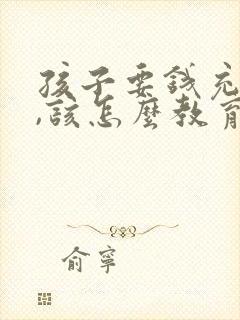 孩子要錢充
,該怎麼教育
俞寧